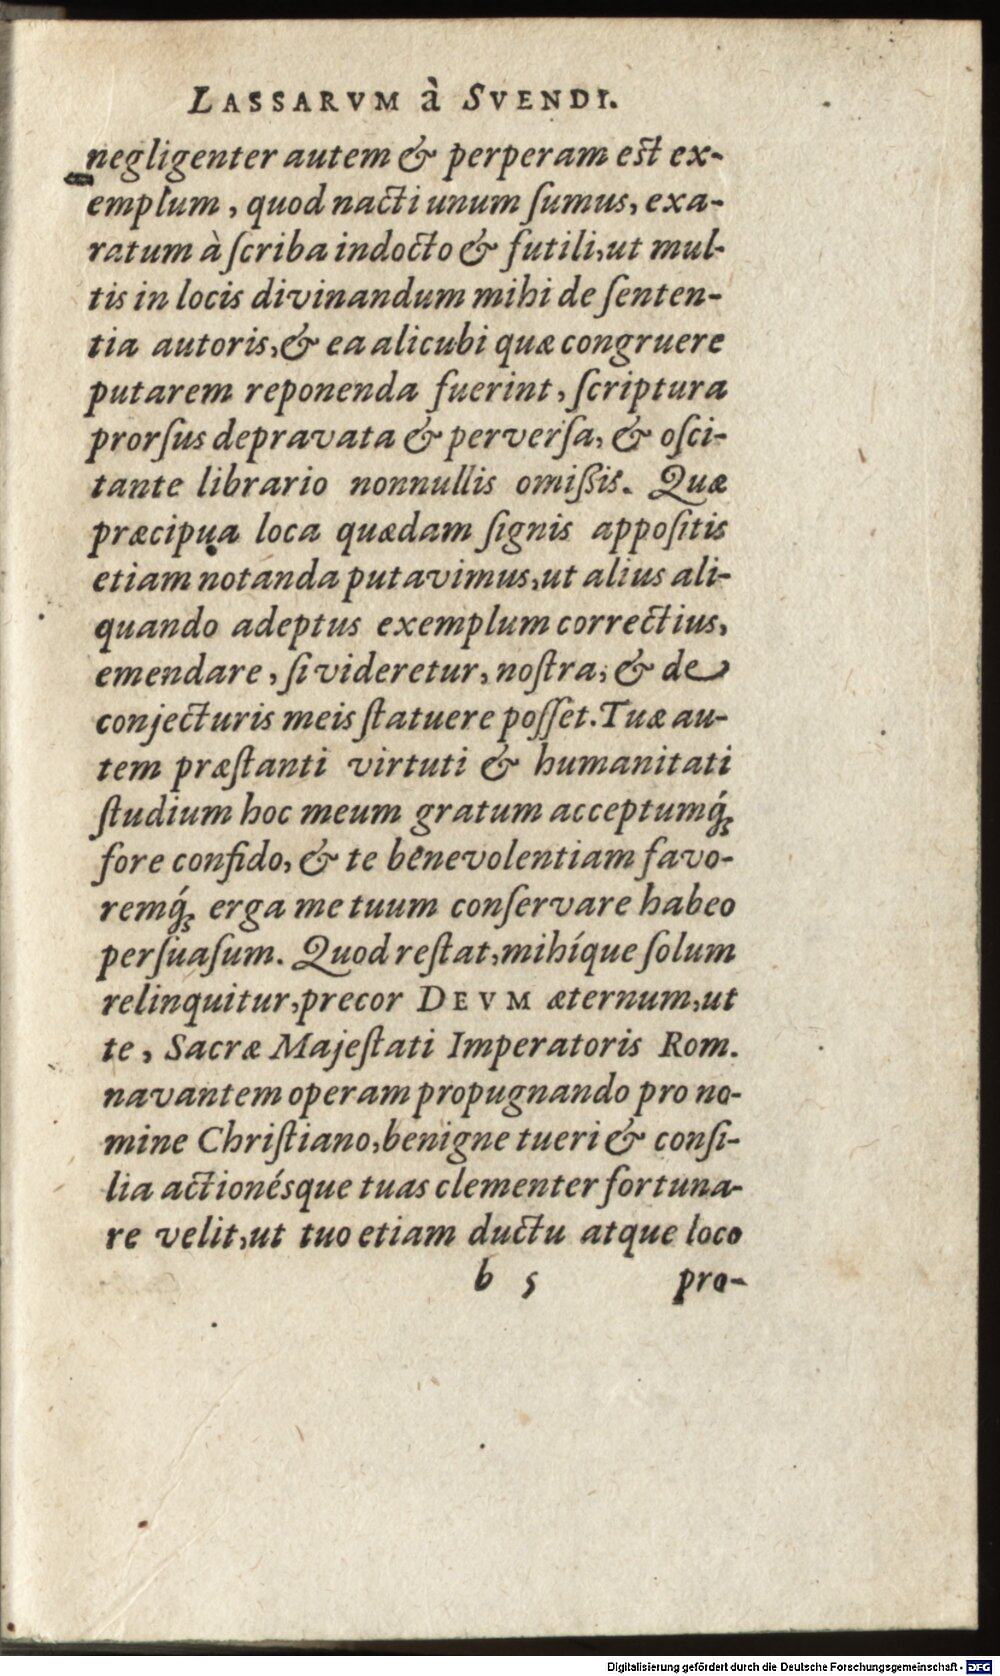 LASSARVM à SVENDI.
negligenter autem & perperam est ex-
emplum, quod nacti unum ſumus, exa-
ratum à ſcriba indocto & futili, ut mul-
tis in locis divinandum mihi de ſenten-
tia autoris, & ea alicubi quæ congruere
putarem reponenda fuerint, ſcriptura
prorſus depravata & perverſa, & oſci-
tante librario nonnullis omiſſis. Quæ
præcipua loca quædam ſignis appoſitis
etiam notanda putavimus, ut alius ali-
quando adeptus exemplum correctius,
emendare, ſi videretur, noſtra, & de
conjecturis meis ſtatuere poſſet. Tuæ au-
tem præſtanti virtuti & humanitati
ſtudium hoc meum gratum acceptumq́;
fore confido, & te benevolentiam favo-
remq́; erga me tuum conſervare habeo
perſuaſum. Quod reſtat, mihíque ſolum
relinquitur, precor DEVM æternum, ut
te, Sacræ Majeſtati Imperatoris Rom.
navantem operam propugnando pro no-
mine Chriſtiano, benigne tueri & conſi-
lia actionésque tuas clementer fortuna-
re velit, ut tuo etiam ductu atque loco
b 5 pro-
Digitalisierung gefördert durch die Deutsche Forschungsgemeinschaft - DFG